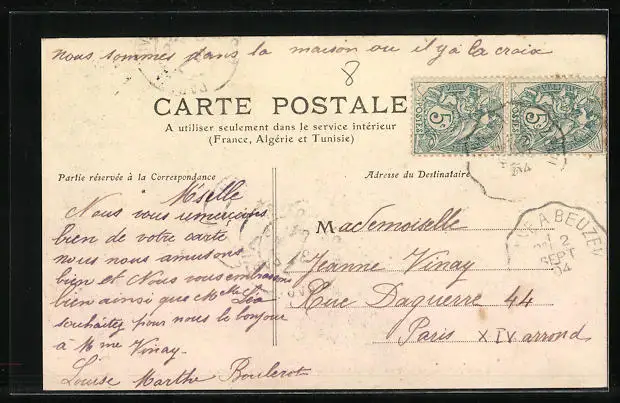 nous sommes dans la maison ou il y a la croix
8
CARTE POSTALE
A utiliser seulement dans le service intérieur
(France, Algérie et Tunisie)
POSTES 5c
POSTES 5c
Partie réservée à la Correspondance
Adresse du Destinataire
M'selle
Nous vous remercions
bien de votre carte
nous nous amusons
bien et Nous vous embrassons
bien ainsi que Melle Léa
souhaitez pour nous le bonjour
à Mme Vinay
Louise Marthe Boulerot
Mademoiselle
Jeanne Vinay
Rue Daguerre 44
Paris XIV arrond
A BEUZEV
2
SEPT
04